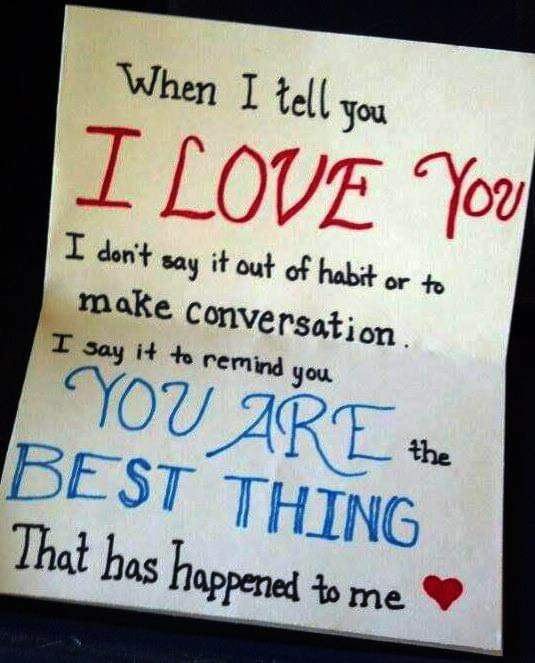 When I tell you
I LOVE YOU
I don't say it out of habit or to
make conversation.
I say it to remind you
YOU ARE the
BEST THING
That has happened to me ♥